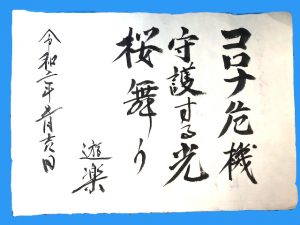 コロナ危機
守護する光
桜舞り
遊楽
令和二年五月吉日